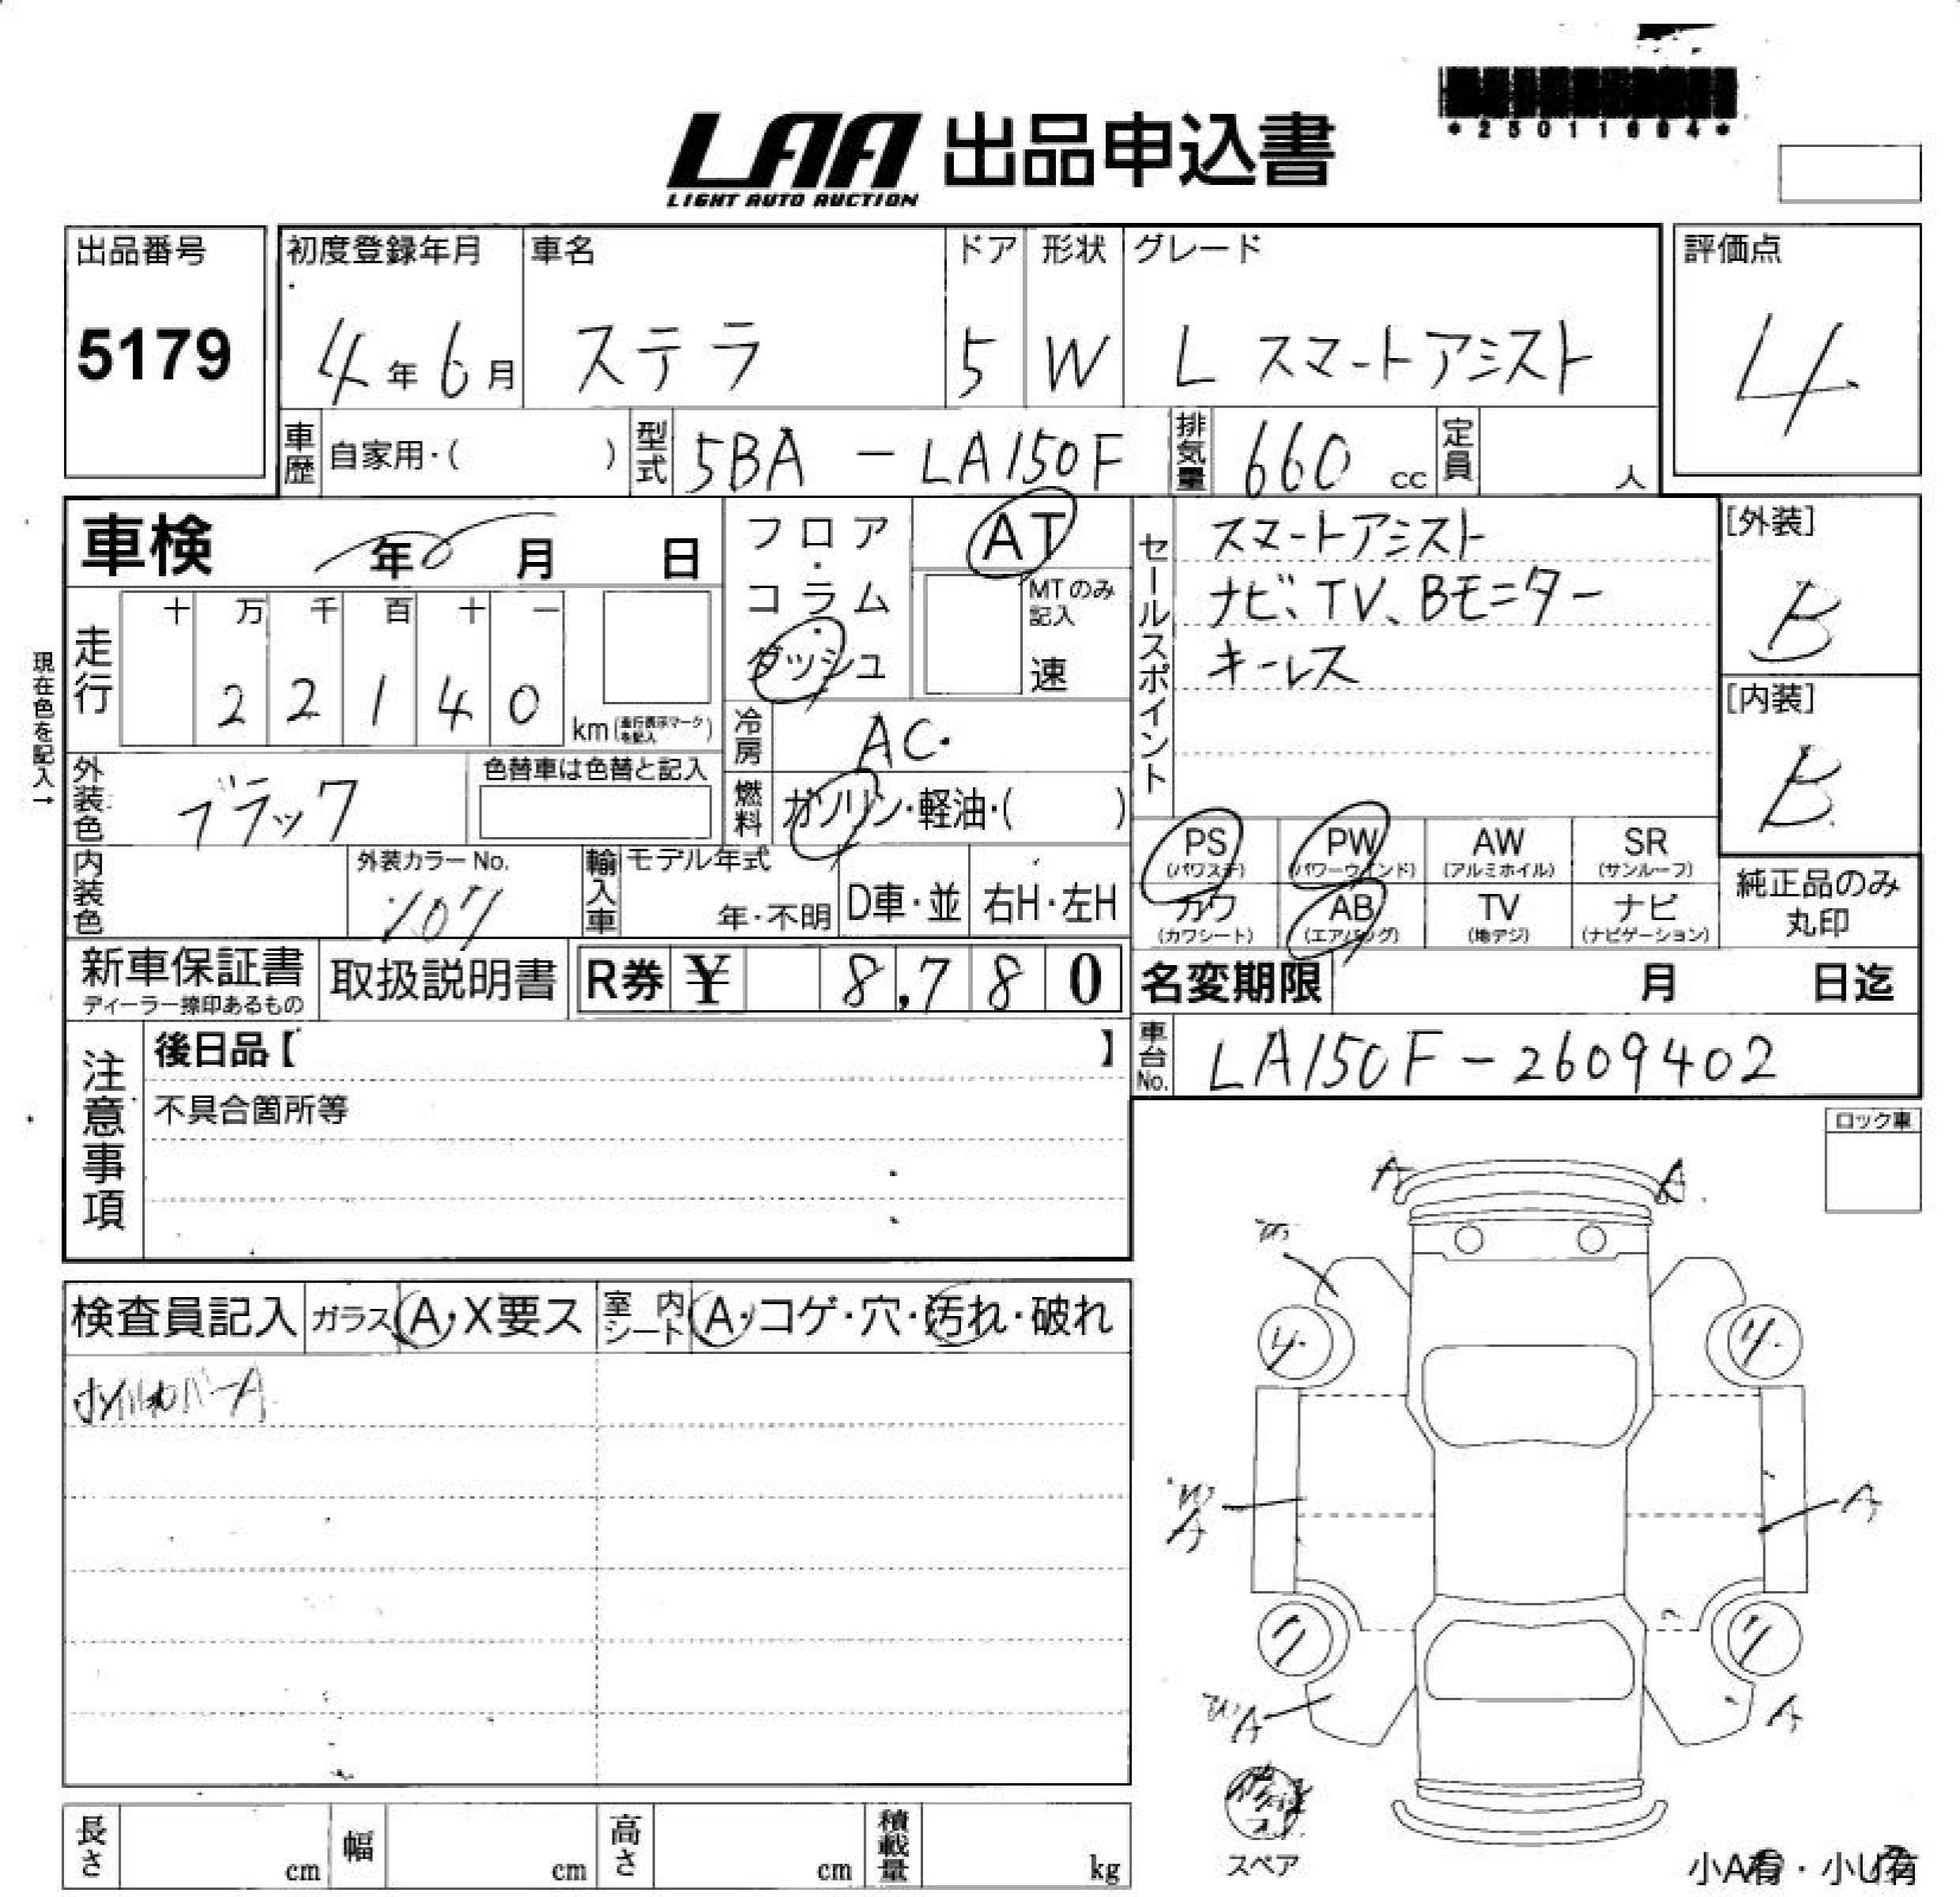 *25011604*
LAA 出品申込書
LIGHT AUTO AUCTION
出品番号 初度登録年月 車名 ドア 形状 グレード 評価点
5179 4年6月 ステラ 5 W L スマートアシスト 4
車歴 自家用・( ) 型式 5BA - LA150F 排気量 660 cc 定員 人
車検 年 月 日 フロア・コラム・ダッシュ AT セールスポイント スマートアシスト [外装]
MTのみ記入 速 ナビ、TV、Bモニター B
走行 十 万 千 百 十 一 キーレス
2 2 1 4 0 km (走行表示マークを記入) [内装]
現在色を記入→
冷房 AC. B
外装色 ブラック 色替車は色替と記入 燃料 ガソリン・軽油・( )
PS (パワステ) PW (パワーウインド) AW (アルミホイル) SR (サンルーフ)
内装色 外装カラーNo. 輸入車 モデル年式 年・不明 D車・並 右H・左H
X07
カワ (カワシート) AB (エアバッグ) TV (地デジ) ナビ (ナビゲーション) 純正品のみ丸印
新車保証書 ディーラー捺印あるもの 取扱説明書 R券 ¥ 8,780 名変期限 月 日迄
注意事項 後日品【 】 車台No. LA150F-2609402
不具合箇所等
ロック車
A A
検査員記入 ガラス A・X要ス 室内シート A・コゲ・穴・汚れ・破れ
ホイルカバーA
A A
A A
スペア
長さ cm 幅 cm 高さ cm 積載量 kg
小A有・小U有